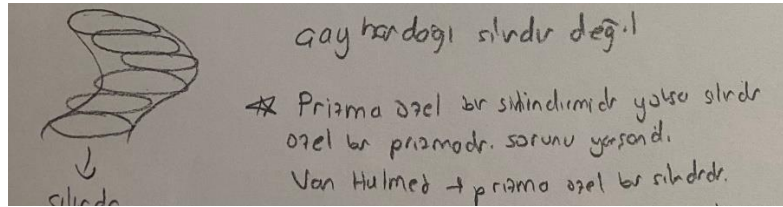 çay bardağı silindir değil
* Prizma özel bir silindirmidir yoksa silindir
özel bir prizmadır. sorunu yaşandı.
Van Hulmed → prizma özel bir silindirdir.
silindir